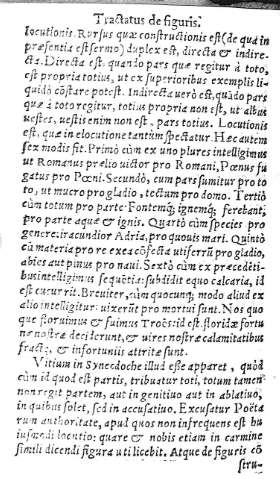 Tractatus de figuris.
locutionis. Rursus quæ constructionis est (de qua in
præsentia est sermo) duplex est, directa & indire-
cta. Directa est, quando pars quæ regitur à toto,
est propria totius, ut ex superioribus exemplis li-
quidò cōstare potest. Indirecta uerò est, quādo pars
quæ à toto regitur, totius propria non est, ut albus
uestes, uestis enim non est, pars totius. Locutionis
est, quæ in elocutione tantùm spectatur. Hæc autem
sex modis fit. Primò cùm ex uno plures intelligimus
ut Romanus prælio victor pro Romani, Pœnus fu
gatus pro Pœni. Secundò, cum pars sumitur pro to
to, ut mucro pro gladio, tectum pro domo. Tertiò
cùm totum pro parte. Fontemq́; ignemq́; ferebant,
pro parte aquæ & ignis. Quartò cùm species pro
genere. iracundior Adria, pro quouis mari. Quintò
cù materia pro re ex ea cōfecta ut ferrū pro gladio,
abies aut pinus pro naui. Sextò cùm ex præcedēti-
bus intelligimus sequētia: subdidit equo calcaria, id
est cucurrit. Breuiter, cùm quocunq; modo aliud ex
alio intelligitur: uixerūt pro mortui sunt. Nos quo
que floruimus & fuimus Troës: id est. floridæ fortu
næ nostræ deciderunt, & uires nostræ calamitatibus
fractæ, & infortunijs attritæ sunt.
Vitium in Synecdoche illud esse apparet, quòd
cùm id quod est partis, tribuatur toti, totum tamen
non regit partem, aut in genitiuo aut in ablatiuo,
in quibus solet, sed in accusatiuo. Excusatur Poëta
rum authoritate, apud quos non infrequens est hu
iusmodi locutio: quare & nobis etiam in carmine
simili dicendi figura uti licebit. Atque de figuris cō
stru-